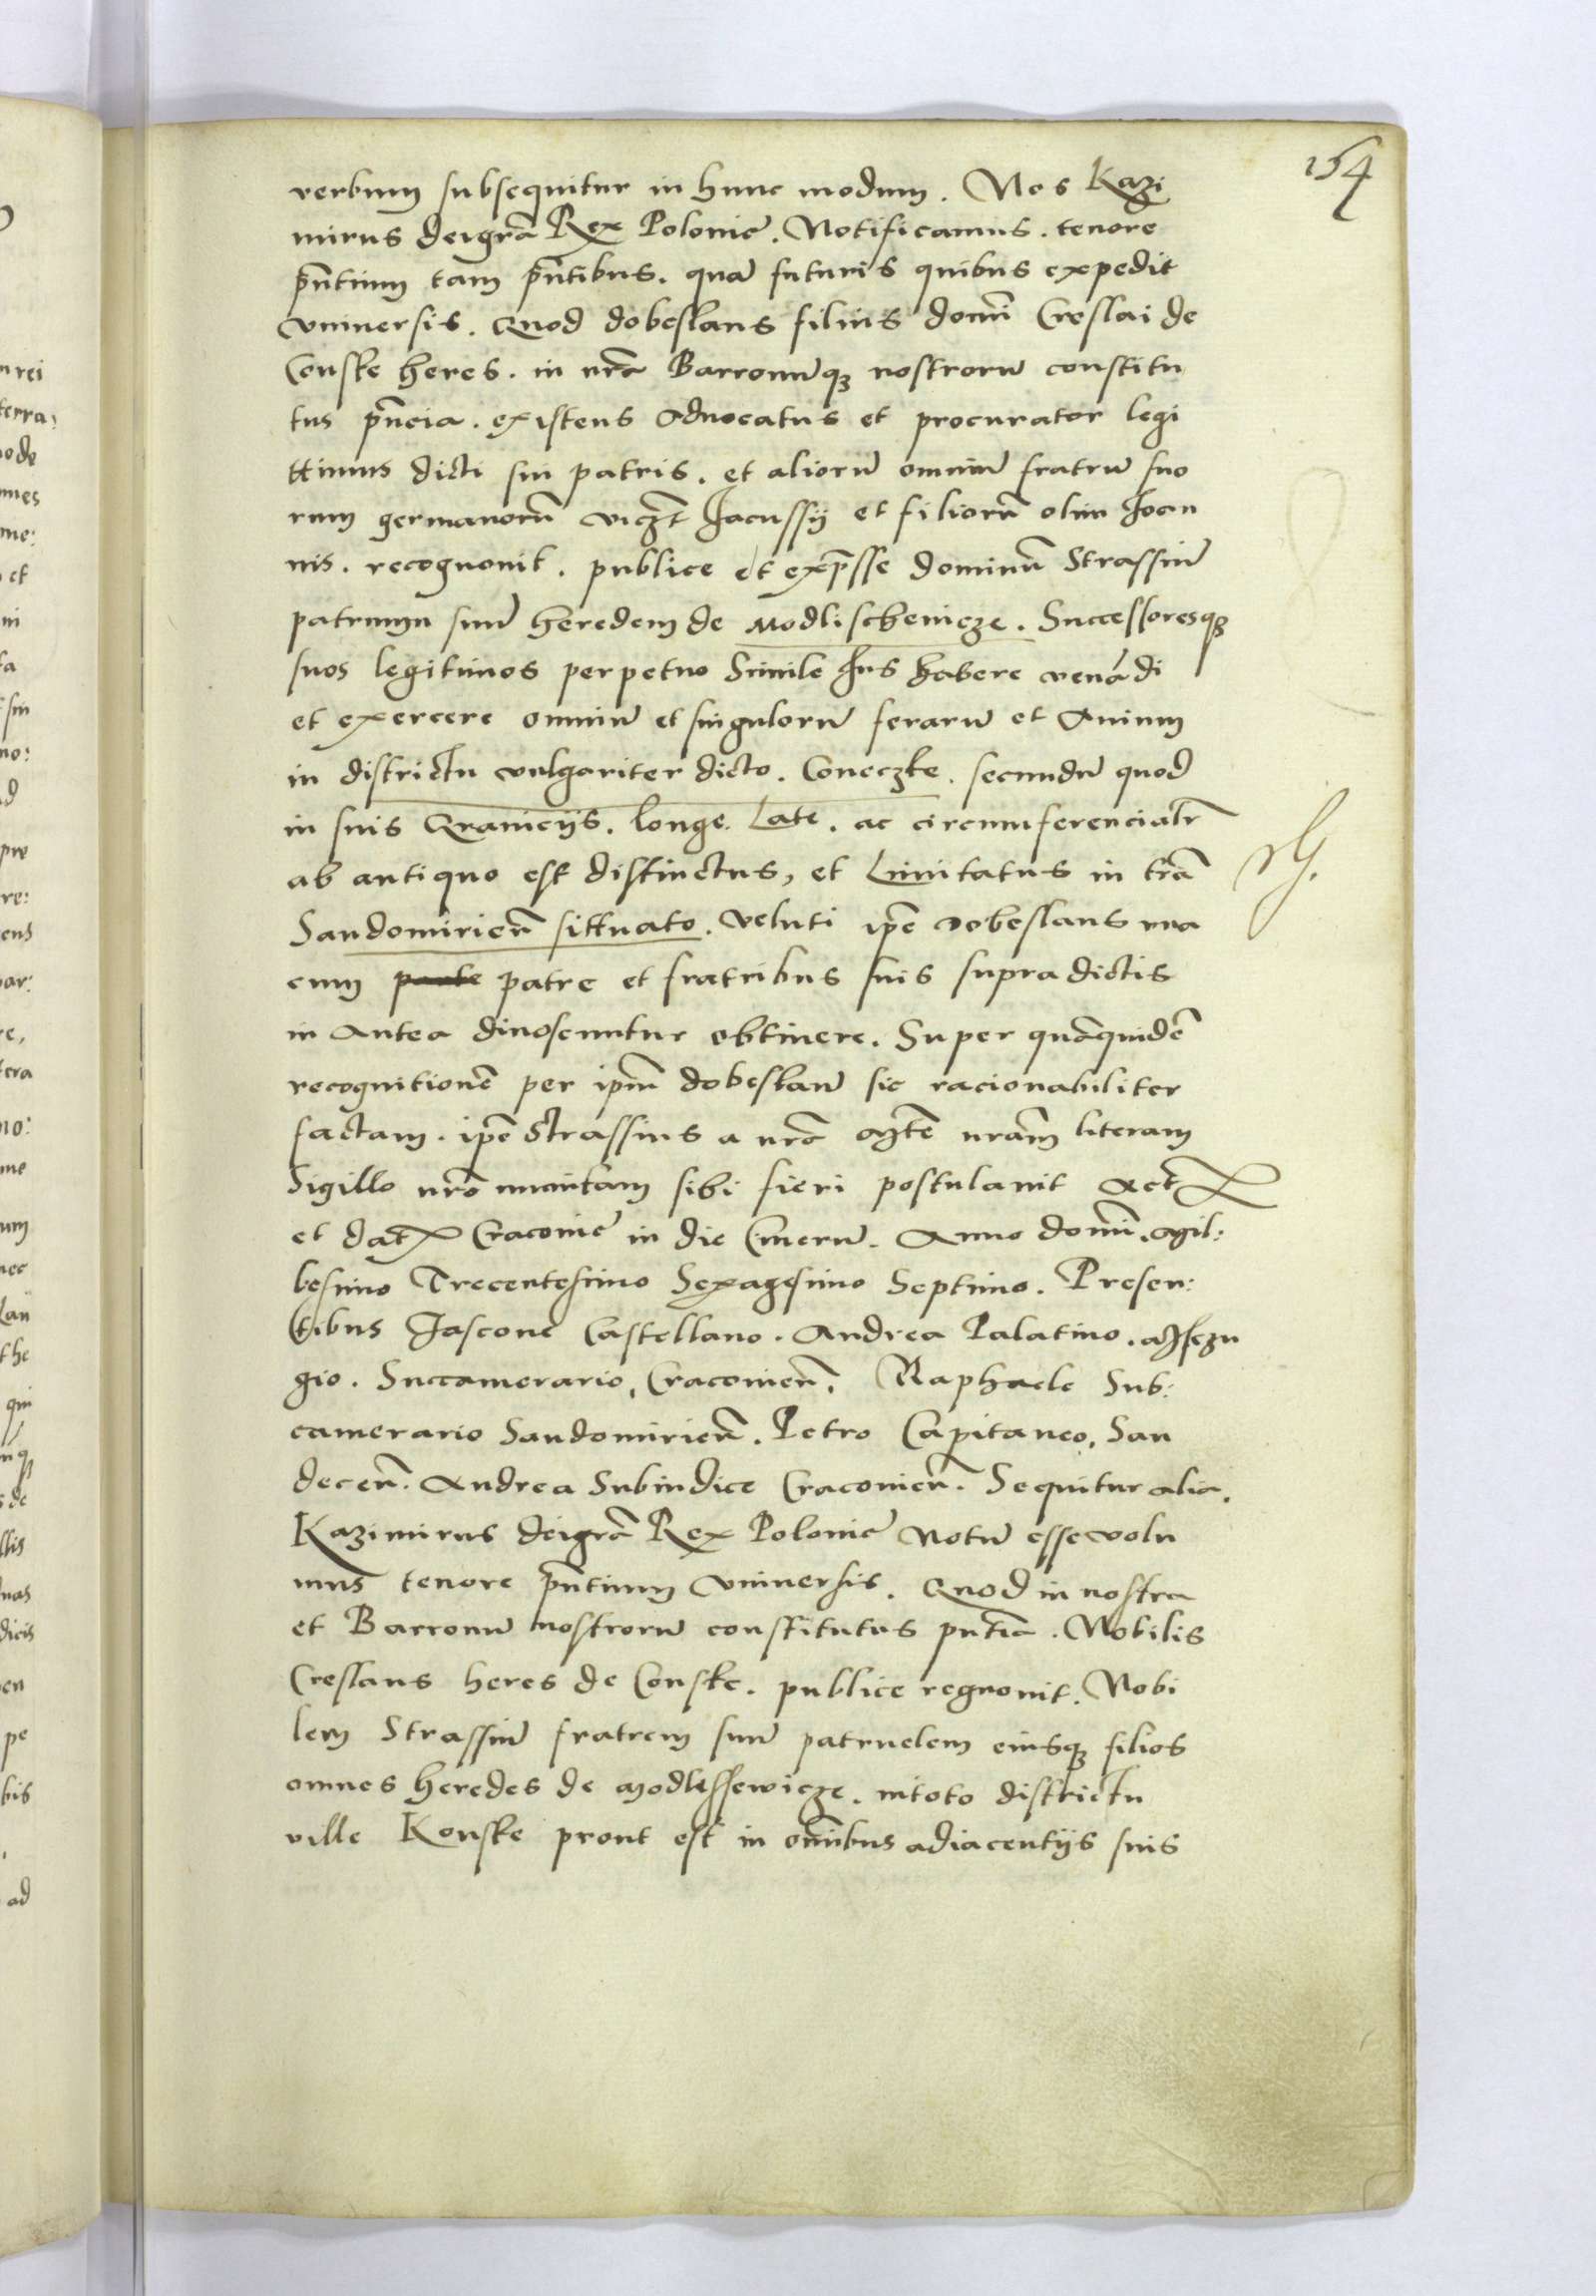 154
verbum subsequitur in hunc modum. Nos Kazi
mirus deigrā Rex Polonie. Notificamus. tenore
pn̄tium tam pn̄tibus. quā futuris quibus expedit
vniuersis. Quod dobeslaus filius domī Creslai de
Conske heres. in nrā Barronūq₃ nostrorū constitu
tus pn̄cia. existens Aduocatus et procurator legi
ttimus dicti sui patris. et aliorū omniū fratrū suo
rum germanorū vicꝫt Jacussij et filiorū olim Joan
nis. recognouit. publice et exp̄sse dominū Strassiū
patruum suū heredem de Modlischenicze. Successoresq₃
suos legitimos perpetuo Simile Jus habere venādi
et exercere omniū et singulorū ferarū et Auium
in districtu vulgariter dicto. Coneczke. secundū quod
in suis Graniciis. longe. Late. ac circumferencialr̄
ab antiquo est distinctus, et Limitatus in trā
Sandomirien̄ sittuato. Veluti ip̄e Dobeslaus vna
cum parte patre et fratribus suis supradictis
in Antea dinoscuntur obtinere. Super quāquidē
recognitionē per ip̄m dobeslaū sic racionabiliter
factam. ip̄e Strassius a nrā Mtē nrām literam
Sigillo nrō munitam sibi fieri postulauit Act
et Dat Cracouie in die Cinerū. Anno domī. Mil:
lesimo Trecentesimo Sexagesimo Septimo. Presen:
tibus Jascone Castellano. Andrea Palatino. Msczu
gio. Succamerario, Cracouien̄. Raphaele Sub:
camerario Sandomirien̄. Petro Capitaneo, San
decen̄. Andrea Subiudice Cracouien̄. Sequitur alia.
Kazimirus deigrā Rex Polonie Notū esse volu
mus tenore pn̄tium vniuersis. Quod in nostra
et Barronū nostrorū constitutus pn̄tia. Nobilis
Creslaus heres de Conske. publice regnouit. Nobi
lem Strassiū fratrem suū patruelem eiusq₃ filios
omnes heredes de Modlssewicze. intoto districtu
ville Konske prout est in om̄ibus adiacentijs suis